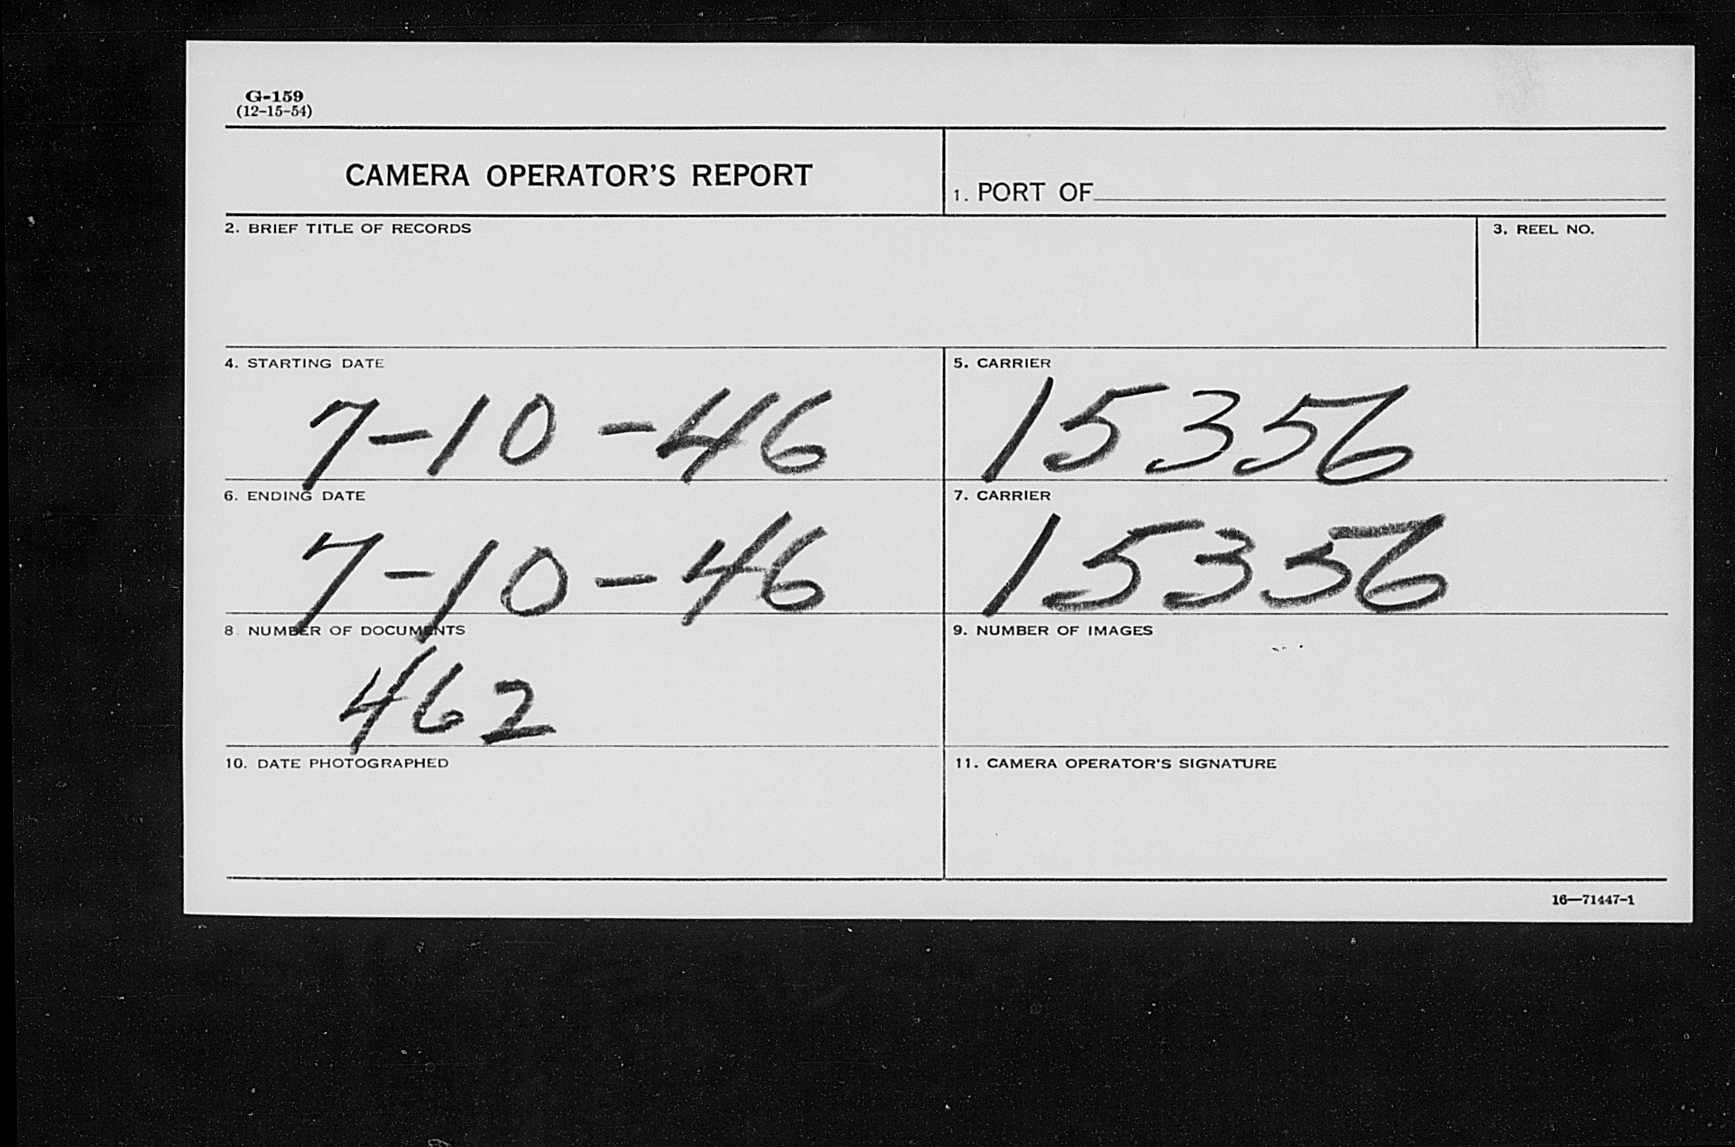 G-159
(12-15-54)
CAMERA OPERATOR'S REPORT
1. PORT OF
2. BRIEF TITLE OF RECORDS
3. REEL NO.
4. STARTING DATE
7-10-46
5. CARRIER
15356
6. ENDING DATE
7-10-46
7. CARRIER
15356
8 NUMBER OF DOCUMENTS
462
9. NUMBER OF IMAGES
10. DATE PHOTOGRAPHED
11. CAMERA OPERATOR'S SIGNATURE
16—71447-1